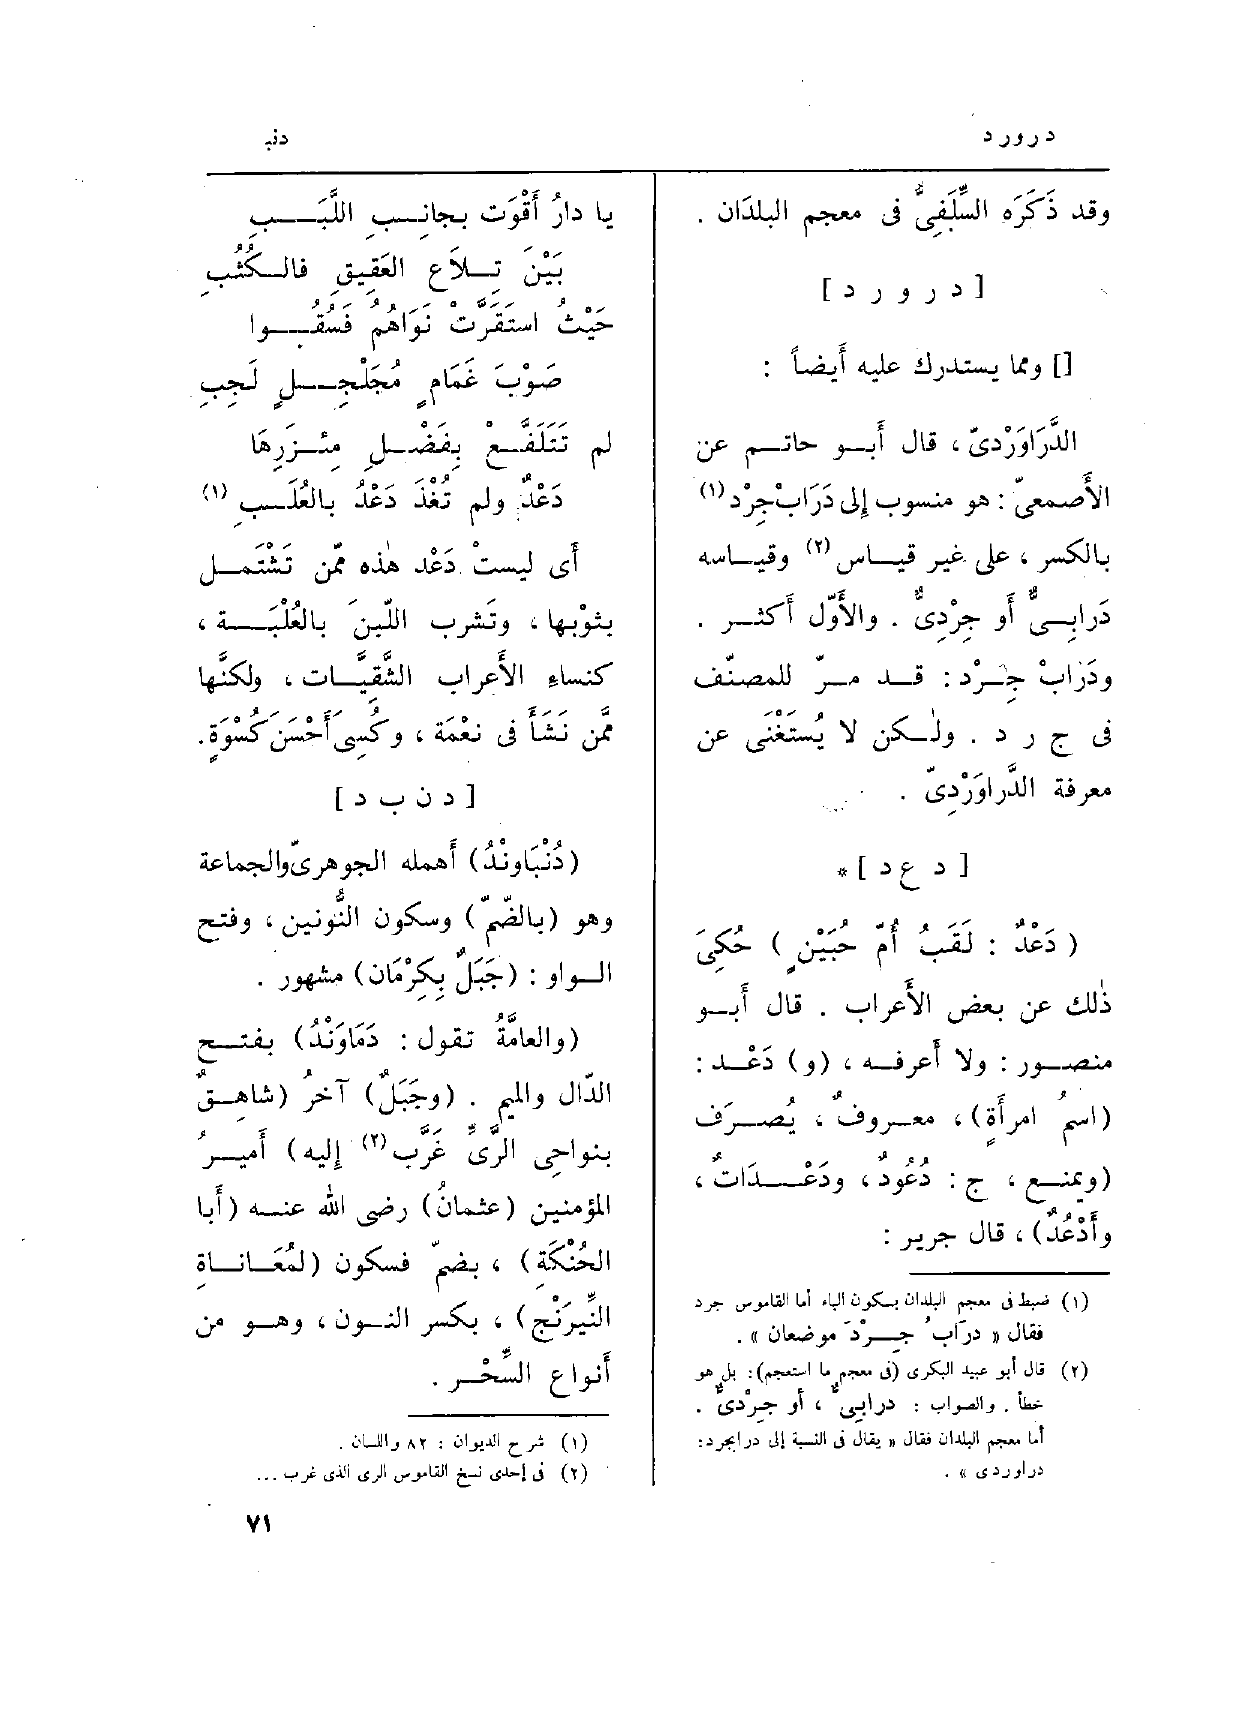 درورد
دنب
وقد ذَكَرَه السِّلَفِىُّ فى معجم البلدَان .
[ د ر و ر د ]
[] ومما يستدرك عليه أَيضاً :
الدَّرَاوَرْدىّ ، قال أَبو حاتم عن
الأَصمعىّ : هو منسوب إلى دَرَابْ‌جِرْد (١)
بالكسر ، على غير قياس (٢) وقياسه
دَرابِىٌّ أَو جِرْدِىٌّ . والأَوّل أَكثر .
ودَرَابْ جِرْد : قد مرّ للمصنّف
فى ج ر د . ولٰكن لا يُسْتَغْنَى عن
معرفة الدَّراوَرْدِىّ .
[ د ع د ] *
( دَعْدٌ : لَقَبُ أُمِّ حُبَيْنٍ ) حُكِىَ
ذٰلك عن بعض الأَعراب . قال أَبو
منصور : ولا أَعرفه ، (و) دَعْد :
(اسمُ امرأَةٍ) ، معروفٌ ، يُصرَف
(ويمنع ، ج : دُعُودٌ ، ودَعْدَاتٌ ،
وأَدْعُدٌ) ، قال جرير :
(١) ضبط فى معجم البلدان بسكون الباء أما القاموس جرد
فقال « درَابُ جِرْدَ موضعان » .
(٢) قال أبو عبيد البكرى (فى معجم ما استعجم) : بل هو
خطأ . والصواب : درابىٌّ ، أو جِرْدىٌّ .
أما معجم البلدان فقال « يقال فى النسبة إلى درابجرد :
دراوردى » .
يا دارُ أَقْوَتْ بجانِبِ اللَّبَبِ
بَيْنَ تِلاَعِ العَقِيقِ فالكُثُبِ
حَيْثُ استَقَرَّتْ نَوَاهُمُ فَسُقُوا
صَوْبَ غَمَامٍ مُجَلْجِلٍ لَجِبِ
لم تَتَلَفَّعْ بِفَضْلِ مِئْزَرِهَا
دَعْدٌ ولم تُغْذَ دَعْدُ بالعُلَبِ (١)
أَى ليستْ دَعْد هٰذه ممّن تَشْتَمل
بثوبها ، وتَشرب اللّبنَ بالعُلْبَة ،
كنساءِ الأَعراب الشَّقِيَّات ، ولكنَّها
ممَّن نَشَأَ فى نعْمَة ، وكُسِىَ أَحْسَنَ كُسْوَةٍ .
[ د ن ب د ]
(دُنْبَاوَنْدُ) أَهمله الجوهرىّ والجماعة
وهو (بالضّمّ) وسكون النُّونين ، وفتح
الواو : (جَبَلٌ بِكِرْمَان) مشهور .
(والعامَّةُ تقول : دَمَاوَنْدُ) بفتح
الدّال والميم . (وجَبَلٌ) آخرُ (شاهِقٌ
بنواحِى الرَّىِّ غَرَّب (٢) إليه) أَميرُ
المؤمنين (عثمانُ) رضى الله عنه (أَبا
الحُنْكَةِ) ، بضمّ فسكون (لمُعَاناةِ
النِّيرَنْجِ) ، بكسر النون ، وهو من
أَنواع السِّحْر .
(١) شرح الديوان : ٨٢ واللسان .
(٢) فى إحدى نسخ القاموس الرى الذى غرب ...
٧١